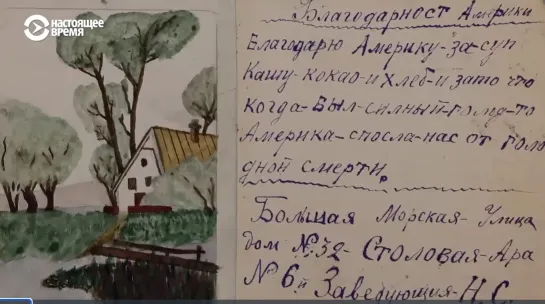 НАСТОЯЩЕЕ
ВРЕМЯ
Благодарност Америки
Благодарю Америку-за-суп
Кашу-кокао-и хлеб-и зато что
когда-был-силный-голод-то
Америка-спосла-нас от голо
дной смерти.
Большая Морская-Улица
дом №32-Столовая-Ара
№6й Заведующия-Н.С.